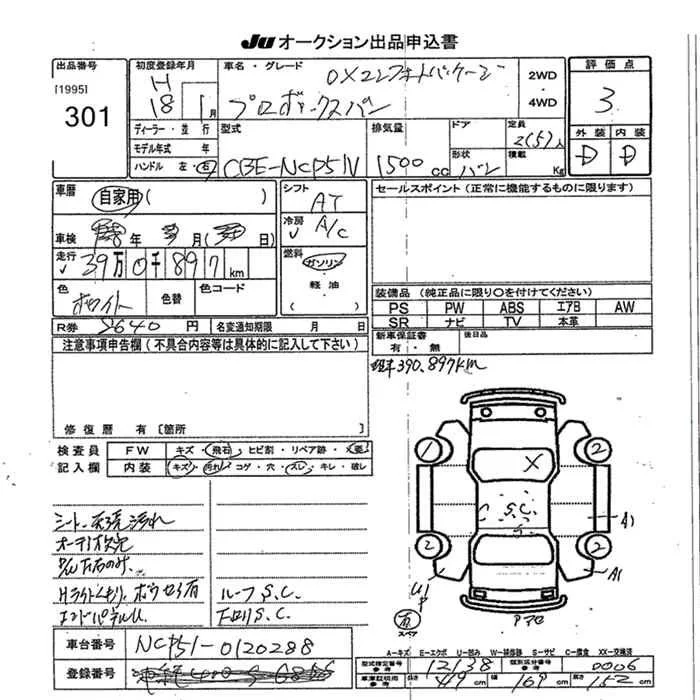 JU オークション出品申込書
出品番号
[1995]
301
初度登録年月
H
18 1 月
車名・グレード
DXコンフォートパッケージ
プロボックスバン
2WD
4WD
評価点
3
外装 内装
D D
ディーラー・並行
モデル年式 年
ハンドル 左・右
型式
CBE-NCP51V
排気量
1500 cc
ドア
形状
バン
定員
2(5)人
積載
Kg
車歴
自家用 ( )
車検 年 月 ( 日)
走行
39万0千897km
色
ホワイト
色替
色コード
シフト
AT
冷房
A/C
燃料
ガソリン
軽油
セールスポイント(正常に機能するものに限ります)
装備品(純正品に限り○を付けてください)
PS PW ABS エアB AW
SR ナビ TV 本革
R券 5640円
名変通知期限 月 日
新車保証書
有・無
後日品
注意事項申告欄(不具合内容等は具体的に記入して下さい)
390,897km
修復歴 有〔箇所
検査員
記入欄
FW キズ・飛石・ヒビ割・リペア跡・X要
内装 キズ・汚れ・コゲ・穴・スレ・キレ・破レ
シート、天張汚れ
オーディオ欠品
P/W左右のみ
エンドパネルU
ルーフS.C.
S.C.
2 2
X
C S.C.
S
A1
2 2
U1
P
A1
スペア
車台番号
NCP51-0120288
登録番号
A-キズ E-エクボ U-凹み W-補修跡 S-サビ C-腐食 XX-交換済
型式指定番号
参考
12138
類別区分番号
参考
0006
車庫証明用
参考
長さ
419cm
幅
169cm
高さ
152cm